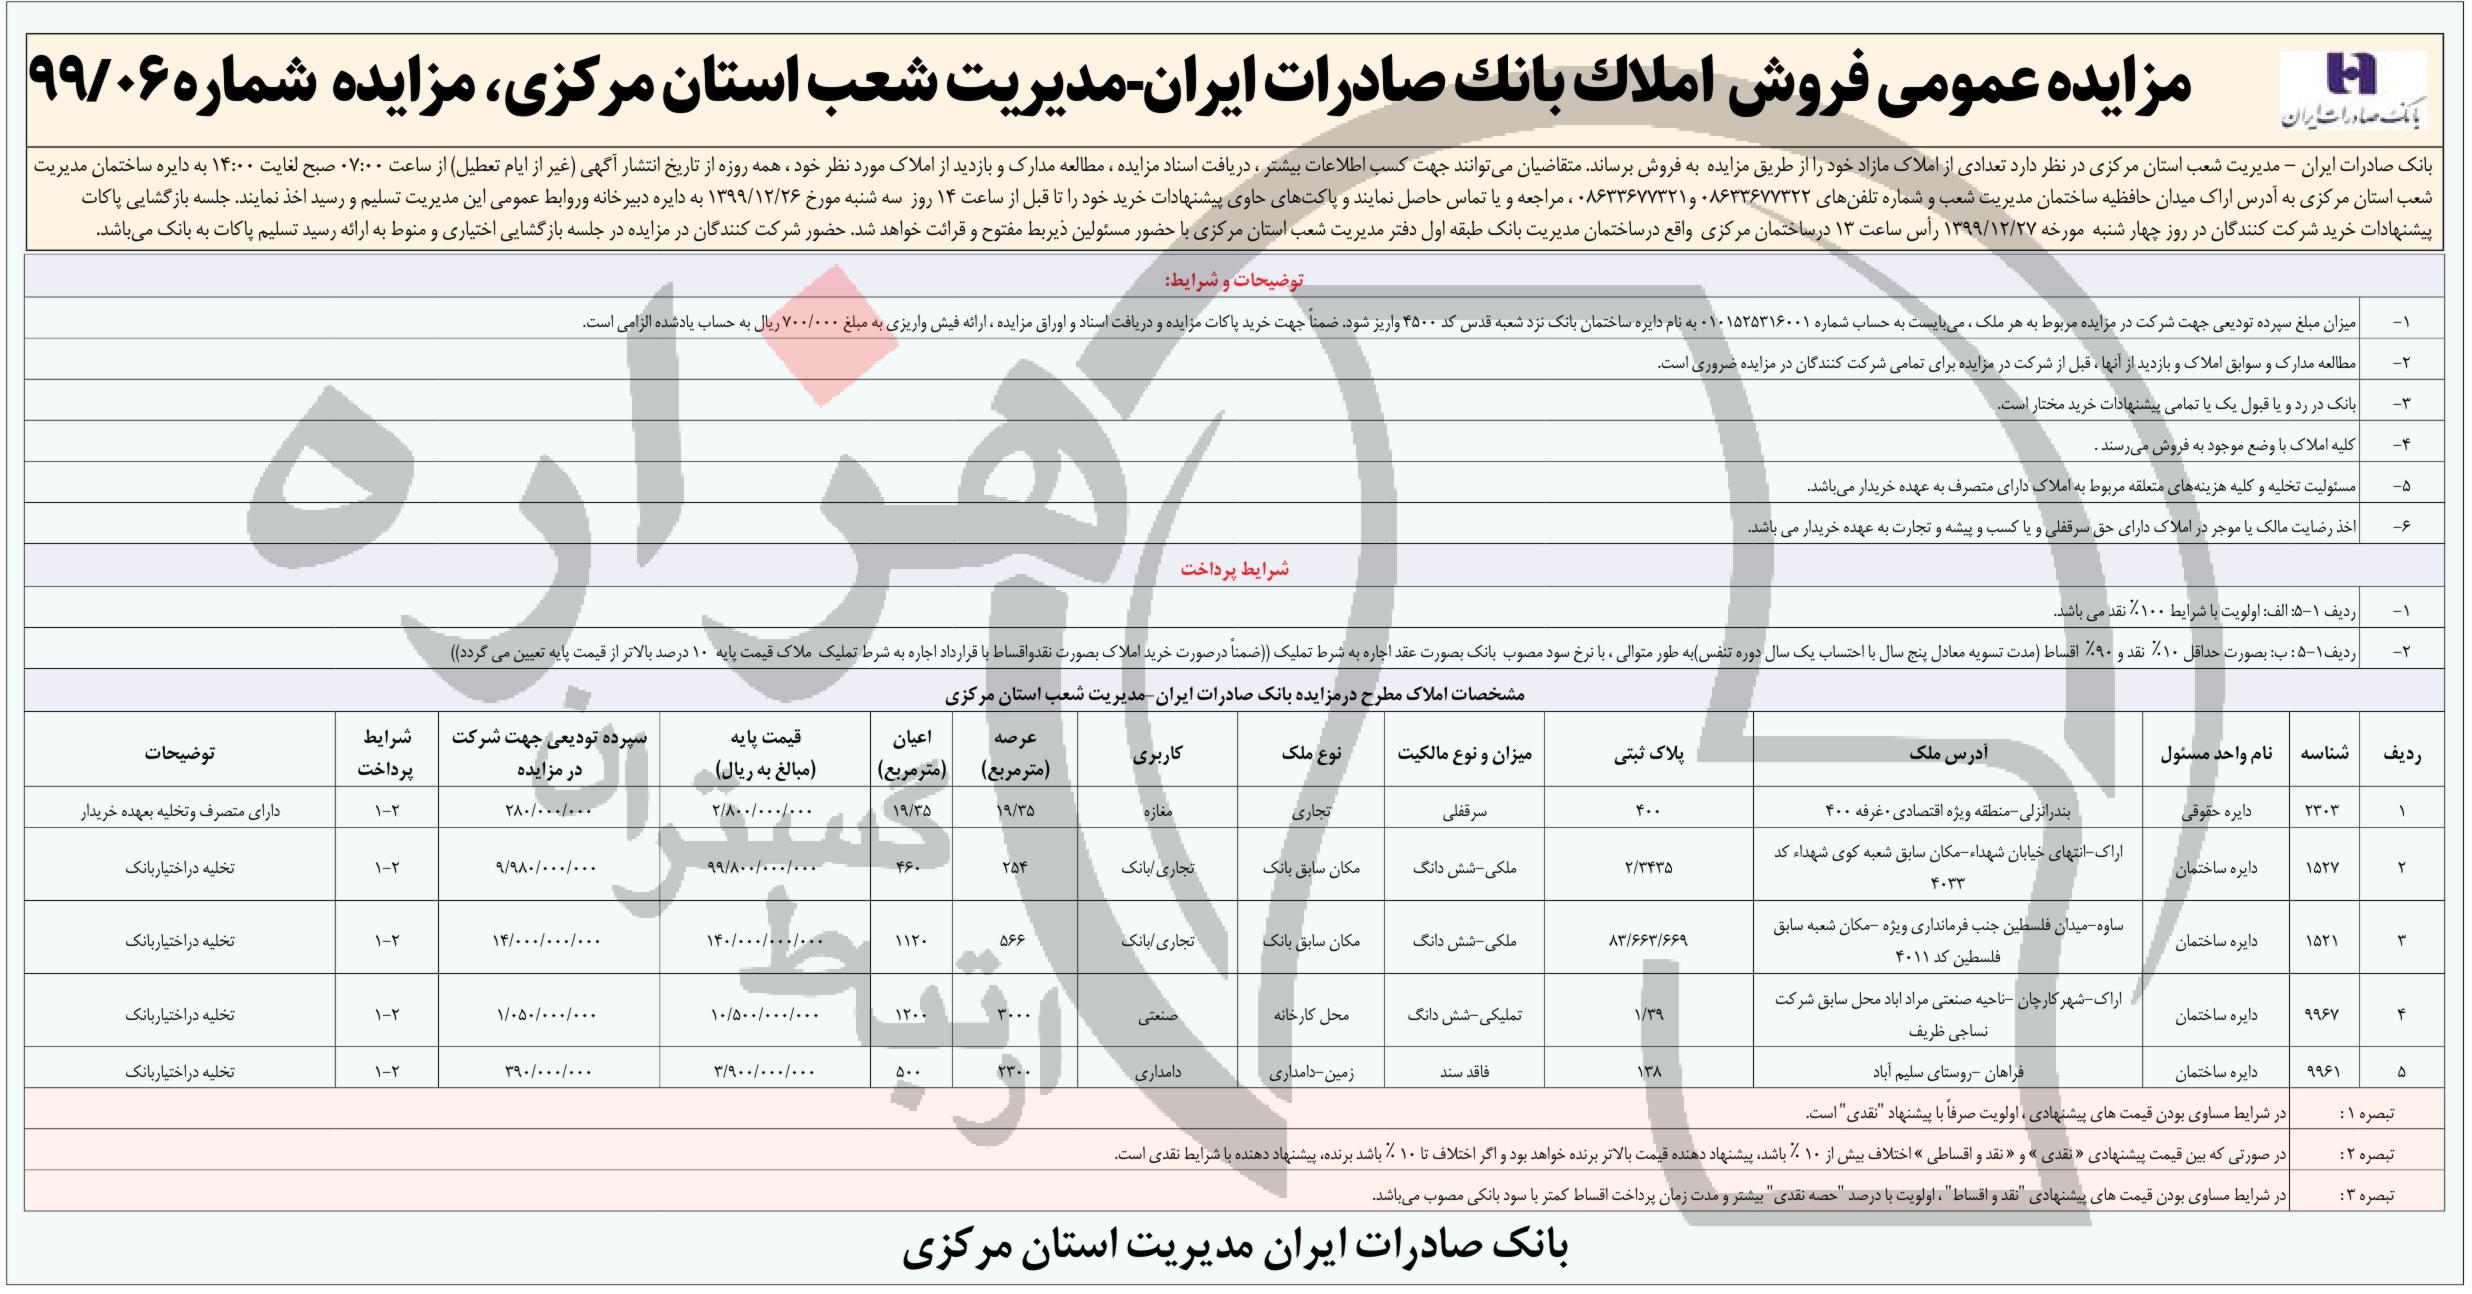 مزایده عمومی فروش املاك بانك صادرات ایران-مدیریت شعب استان مرکزی، مزایده شماره ۹۹/۰۶
بانک صادرات ایران
بانک صادرات ایران – مدیریت شعب استان مرکزی در نظر دارد تعدادی از املاک مازاد خود را از طریق مزایده به فروش برساند. متقاضیان می‌توانند جهت کسب اطلاعات بیشتر ، دریافت اسناد مزایده ، مطالعه مدارک و بازدید از املاک مورد نظر خود ، همه روزه از تاریخ انتشار آگهی (غیر از ایام تعطیل) از ساعت ۰۷:۰۰ صبح لغایت ۱۴:۰۰ به دایره ساختمان مدیریت
شعب استان مرکزی به آدرس اراک میدان حافظیه ساختمان مدیریت شعب و شماره تلفن‌های ۰۸۶۳۳۶۷۷۳۲۲ و۰۸۶۳۳۶۷۷۳۲۱ ، مراجعه و یا تماس حاصل نمایند و پاکت‌های حاوی پیشنهادات خرید خود را تا قبل از ساعت ۱۴ روز سه شنبه مورخ ۱۳۹۹/۱۲/۲۶ به دایره دبیرخانه وروابط عمومی این مدیریت تسلیم و رسید اخذ نمایند. جلسه بازگشایی پاکات
پیشنهادات خرید شرکت کنندگان در روز چهار شنبه مورخه ۱۳۹۹/۱۲/۲۷ رأس ساعت ۱۳ درساختمان مرکزی واقع درساختمان مدیریت بانک طبقه اول دفتر مدیریت شعب استان مرکزی با حضور مسئولین ذیربط مفتوح و قرائت خواهد شد. حضور شرکت کنندگان در مزایده در جلسه بازگشایی اختیاری و منوط به ارائه رسید تسلیم پاکات به بانک می‌باشد.
توضیحات و شرایط:
۱- میزان مبلغ سپرده تودیعی جهت شرکت در مزایده مربوط به هر ملک ، می‌بایست به حساب شماره ۰۱۰۱۵۲۵۳۱۶۰۰۱ به نام دایره ساختمان بانک نزد شعبه قدس کد ۴۵۰۰ واریز شود. ضمناً جهت خرید پاکات مزایده و دریافت اسناد و اوراق مزایده ، ارائه فیش واریزی به مبلغ ۷۰۰/۰۰۰ ریال به حساب یادشده الزامی است.
۲- مطالعه مدارک و سوابق املاک و بازدید از آنها ، قبل از شرکت در مزایده برای تمامی شرکت کنندگان در مزایده ضروری است.
۳- بانک در رد و یا قبول یک یا تمامی پیشنهادات خرید مختار است.
۴- کلیه املاک با وضع موجود به فروش می‌رسند .
۵- مسئولیت تخلیه و کلیه هزینه‌های متعلقه مربوط به املاک دارای متصرف به عهده خریدار می‌باشد.
۶- اخذ رضایت مالک یا موجر در املاک دارای حق سرقفلی و یا کسب و پیشه و تجارت به عهده خریدار می باشد.
شرایط پرداخت
۱- ردیف ۱-۵: الف: اولویت با شرایط ۱۰۰٪ نقد می باشد.
۲- ردیف۱-۵ : ب: بصورت حداقل ۱۰٪ نقد و ۹۰٪ اقساط (مدت تسویه معادل پنج سال با احتساب یک سال دوره تنفس)به طور متوالی ، با نرخ سود مصوب بانک بصورت عقد اجاره به شرط تملیک ((ضمناً درصورت خرید املاک بصورت نقدواقساط با قرارداد اجاره به شرط تملیک ملاک قیمت پایه ۱۰ درصد بالاتر از قیمت پایه تعیین می گردد))
مشخصات املاک مطرح درمزایده بانک صادرات ایران-مدیریت شعب استان مرکزی
ردیف شناسه نام واحد مسئول آدرس ملک پلاک ثبتی میزان و نوع مالکیت نوع ملک کاربری عرصه (مترمربع) اعیان (مترمربع) قیمت پایه (مبالغ به ریال) سپرده تودیعی جهت شرکت در مزایده شرایط پرداخت توضیحات
۱ ۲۳۰۳ دایره حقوقی بندرانزلی-منطقه ویژه اقتصادی۰غرفه ۴۰۰ ۴۰۰ سرقفلی تجاری مغازه ۱۹/۳۵ ۱۹/۳۵ ۲/۸۰۰/۰۰۰/۰۰۰ ۲۸۰/۰۰۰/۰۰۰ ۱-۲ دارای متصرف وتخلیه بعهده خریدار
۲ ۱۵۲۷ دایره ساختمان اراک-انتهای خیابان شهداء-مکان سابق شعبه کوی شهداء کد ۴۰۳۳ ۲/۳۴۳۵ ملکی-شش دانگ مکان سابق بانک تجاری/بانک ۲۵۴ ۴۶۰ ۹۹/۸۰۰/۰۰۰/۰۰۰ ۹/۹۸۰/۰۰۰/۰۰۰ ۱-۲ تخلیه دراختیاربانک
۳ ۱۵۲۱ دایره ساختمان ساوه-میدان فلسطین جنب فرمانداری ویژه -مکان شعبه سابق فلسطین کد ۴۰۱۱ ۸۳/۶۶۳/۶۶۹ ملکی-شش دانگ مکان سابق بانک تجاری/بانک ۵۶۶ ۱۱۲۰ ۱۴۰/۰۰۰/۰۰۰/۰۰۰ ۱۴/۰۰۰/۰۰۰/۰۰۰ ۱-۲ تخلیه دراختیاربانک
۴ ۹۹۶۷ دایره ساختمان اراک-شهرکارچان -ناحیه صنعتی مراد اباد محل سابق شرکت نساجی ظریف ۱/۳۹ تملیکی-شش دانگ محل کارخانه صنعتی ۳۰۰۰ ۱۲۰۰ ۱۰/۵۰۰/۰۰۰/۰۰۰ ۱/۰۵۰/۰۰۰/۰۰۰ ۱-۲ تخلیه دراختیاربانک
۵ ۹۹۶۱ دایره ساختمان فراهان -روستای سلیم آباد ۱۳۸ فاقد سند زمین-دامداری دامداری ۲۳۰۰ ۵۰۰ ۳/۹۰۰/۰۰۰/۰۰۰ ۳۹۰/۰۰۰/۰۰۰ ۱-۲ تخلیه دراختیاربانک
تبصره ۱: در شرایط مساوی بودن قیمت های پیشنهادی ، اولویت صرفاً با پیشنهاد "نقدی" است.
تبصره ۲: در صورتی که بین قیمت پیشنهادی « نقدی » و « نقد و اقساطی » اختلاف بیش از ۱۰ ٪ باشد، پیشنهاد دهنده قیمت بالاتر برنده خواهد بود و اگر اختلاف تا ۱۰ ٪ باشد برنده، پیشنهاد دهنده با شرایط نقدی است.
تبصره ۳: در شرایط مساوی بودن قیمت های پیشنهادی "نقد و اقساط" ، اولویت با درصد "حصه نقدی" بیشتر و مدت زمان پرداخت اقساط کمتر با سود بانکی مصوب می‌باشد.
بانک صادرات ایران مدیریت استان مرکزی
هزاره
گستران
ارتباط